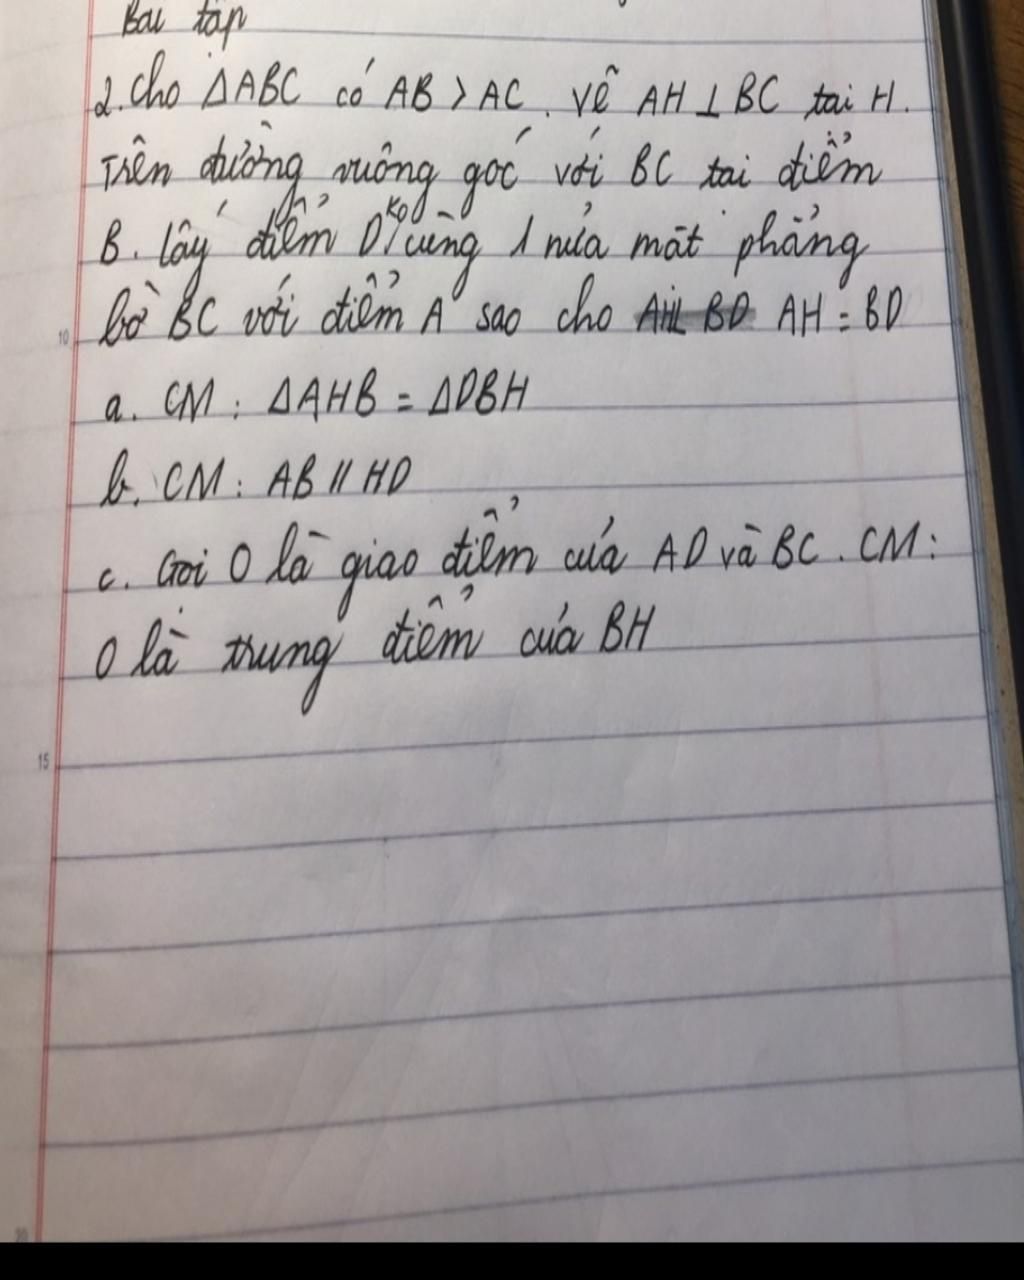 Bài tập
2. Cho ΔABC có AB > AC. vẽ AH ⊥ BC tại H.
Trên đường vuông góc với BC tại điểm
B. lấy điểm D ko cùng 1 nửa mặt phẳng
bờ BC với điểm A sao cho AH = BD
a. CM: ΔAHB = ΔDBH
b. CM: AB // HD
c. Gọi O là giao điểm của AD và BC. CM:
O là trung điểm của BH
10
15
20